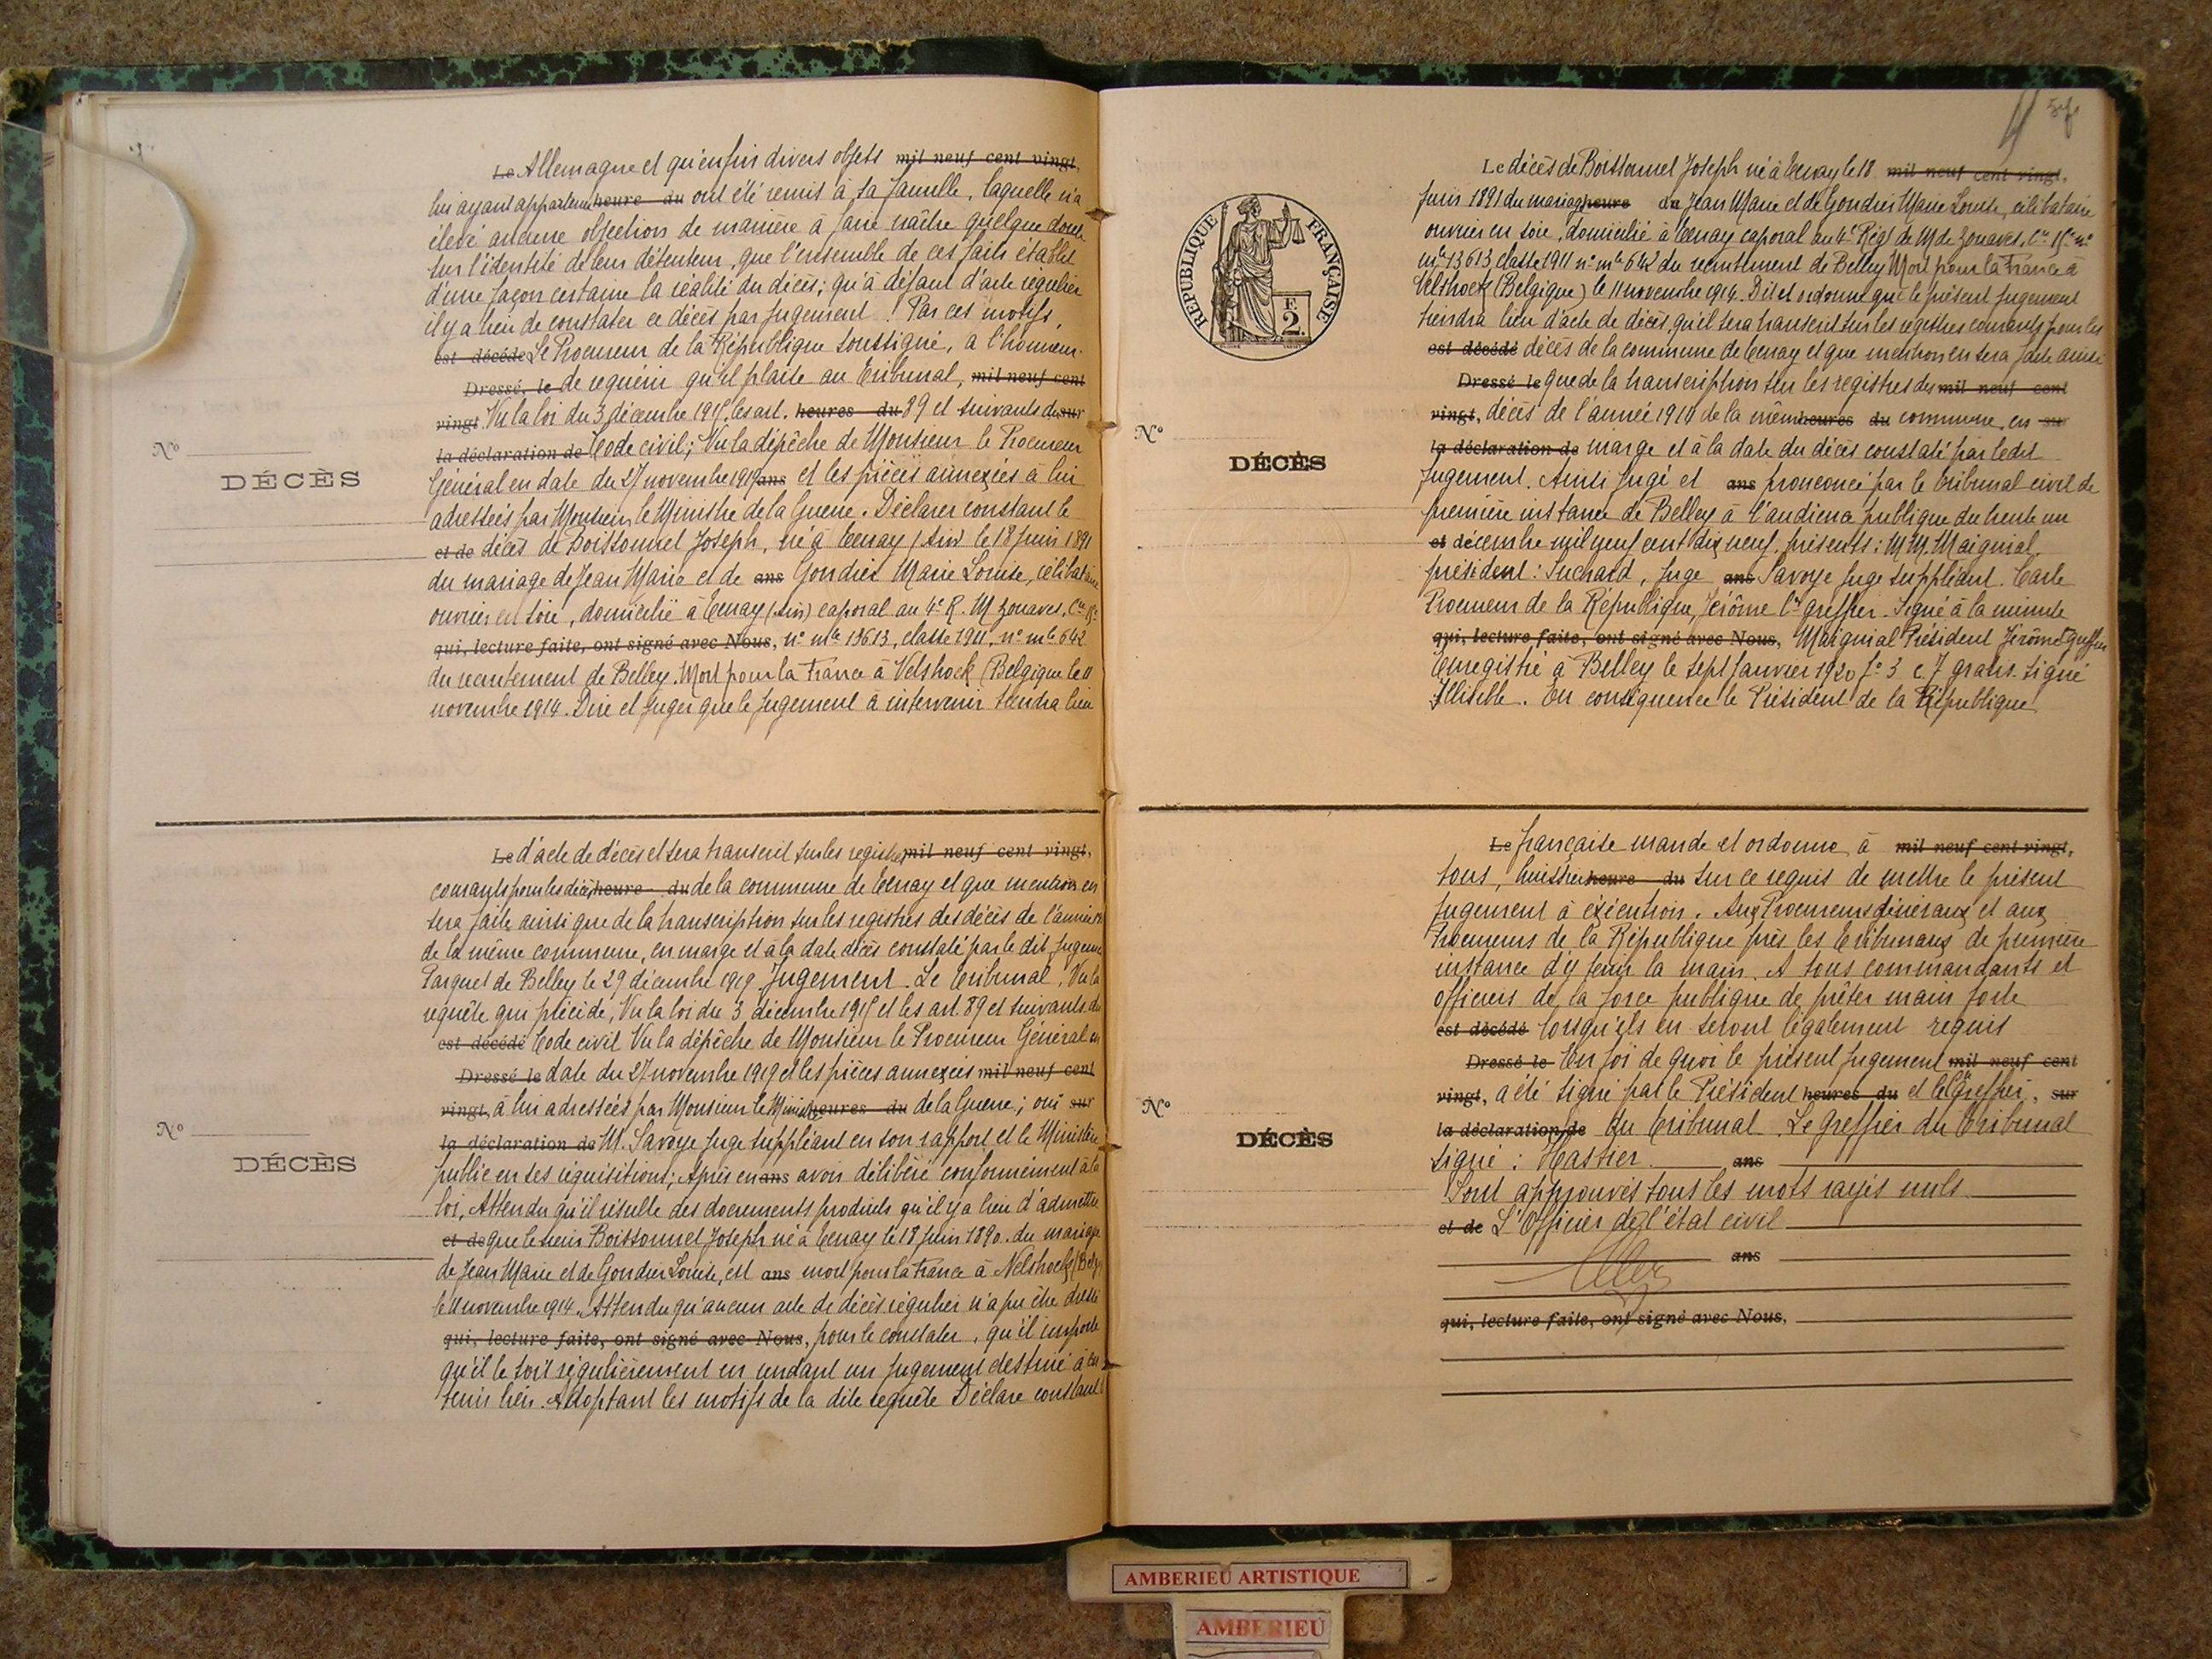 Le Allemagne et qu'enfin divers objets mil neuf cent vingt,
lui ayant appartenu heure du ont été remis à sa famille, laquelle n'a
élevé aucune objection de manière à faire naître quelque doute
sur l'identité de leur détenteur, que l'ensemble de ces faits établit
d'une façon certaine la réalité du décès; qu'à défaut d'acte régulier
il y a lieu de constater ce décès par jugement ! Par ces motifs,
est décédé Le Procureur de la République soussigné, a l'honneur
Dressé, le de requérir qu'il plaise au Tribunal, mil neuf cent
vingt, Vu la loi du 3 décembre 1915, les art. heures du 89 et suivants du sur
la déclaration de Code civil; Vu la dépêche de Monsieur le Procureur
Nº
DÉCÈS
Général en date du 27 novembre 1919 ans et les pièces annexées à lui
adressées par Monsieur le Ministre de la Guerre. Déclarer constant le
et de décès de Boissonnet Joseph, né à Tenay (Ain) le 18 juin 1891
du mariage de Jean Marie et de ans Gondier Marie Louise, célibataire
ouvrier en soie, domicilié à Tenay (Ain) caporal au 4e R. M zouaves, Cie 15e
qui, lecture faite, ont signé avec Nous, nº mle 13613, classe 1911, nº mle 642
du recrutement de Belley. Mort pour la France à Velshoek (Belgique le 11
novembre 1914. Dire et juger que le jugement à intervenir tiendra lieu
Le d'acte de décès et sera transcrit sur les registres mil neuf cent vingt,
courants pour les décès heure du de la commune de Tenay et que mention en
sera faite ainsi que de la transcription sur les registres des décès de l'année
de la même commune, en marge et à la date décès constaté par le dit jugement
Parquet de Belley le 29 décembre 1919. Jugement. Le Tribunal, Vu la
requête qui précède, Vu la loi du 3 décembre 1915 et les art 89 et suivants du
est décédé Code civil Vu la dépêche de Monsieur le Procureur Général en
Dressé le date du 27 novembre 1919 et les pièces annexées mil neuf cent
vingt, à lui adressées par Monsieur le Ministre heures du de la Guerre; ouï sur
la déclaration de M. Savoye juge suppléant en son rapport et le Ministère
Nº
DÉCÈS
public en ses réquisitions; Après en ans avoir délibéré conformément à la
loi, Attendu qu'il résulte des documents produits qu'il y a lieu d'admettre
et de que le sieur Boissonnet Joseph né à Tenay le 18 juin 1890. du mariage
de Jean Marie et de Gondier Louise, est ans mort pour la France à Nelshoek (Belg.
le 11 novembre 1914. Attendu qu'aucun acte de décès régulier n'a pu être dressé
qui, lecture faite, ont signé avec Nous, pour le constater, qu'il importe
qu'il le soit régulièrement en rendant un jugement destiné à en
tenir lieu. Adoptant les motifs de la dite requête Déclare constant
REPUBLIQUE FRANÇAISE
F.
2.
Le décès de Boissonnet Joseph né à Tenay le 18 mil neuf cent vingt,
juin 1891 du mariage heure du Jean Marie et de Gondier Marie Louise, célibataire
ouvrier en soie, domicilié à Tenay caporal au 4e Régt de M de zouaves, Cie 15e nº
mle 13613 classe 1911 nº mle 642 du recrutement de Belley Mort pour la France à
Velshoek (Belgique) le 11 novembre 1914. Dit et ordonne que le présent jugement
tiendra lieu d'acte de décès, qu'il sera transcrit sur les registres courants pour les
est décédé décès de la commune de Tenay et que mention en sera faite ainsi
Dressé le que de la transcription sur les registres des mil neuf cent
vingt, décès de l'année 1914 de la même heures du commune, en sur
la déclaration de marge et à la date du décès constaté par ledit
Nº
DÉCÈS
jugement. Ainsi jugé et ans prononcé par le tribunal civil de
première instance de Belley à l'audience publique du trente un
et décembre mil neuf cent dix neuf. présents: M M. Maignial,
président: Suchard, juge ans Savoye juge suppléant. Carle
Procureur de la République, Jérôme Cis greffier. Signé à la minute
qui, lecture faite, ont signé avec Nous, Maignial Président Jérôme greffier
Enregistré à Belley le sept janvier 1920 fº 3 c. 7 gratis. signé
Illisible. En conséquence le Président de la République
Le française mande et ordonne à mil neuf cent vingt,
tous, huissiers heure du sur ce requis de mettre le présent
jugement à exécution. Aux Procureurs généraux et aux
Procureurs de la République près les Tribunaux de première
instance d'y tenir la main. A tous commandants et
officiers de la force publique de prêter main forte
est décédé lorsqu'ils en seront légalement requis
Dressé le En foi de quoi le présent jugement mil neuf cent
vingt, a été signé par le Président heures du et le Greffier, sur
la déclaration de du Tribunal. Le Greffier du Tribunal
Nº
DÉCÈS
signé: Hastier. ans
Sont approuvés tous les mots rayés nuls
et de L'Officier de l'état civil
ans
qui, lecture faite, ont signé avec Nous,
AMBERIEU ARTISTIQUE
AMBERIEU